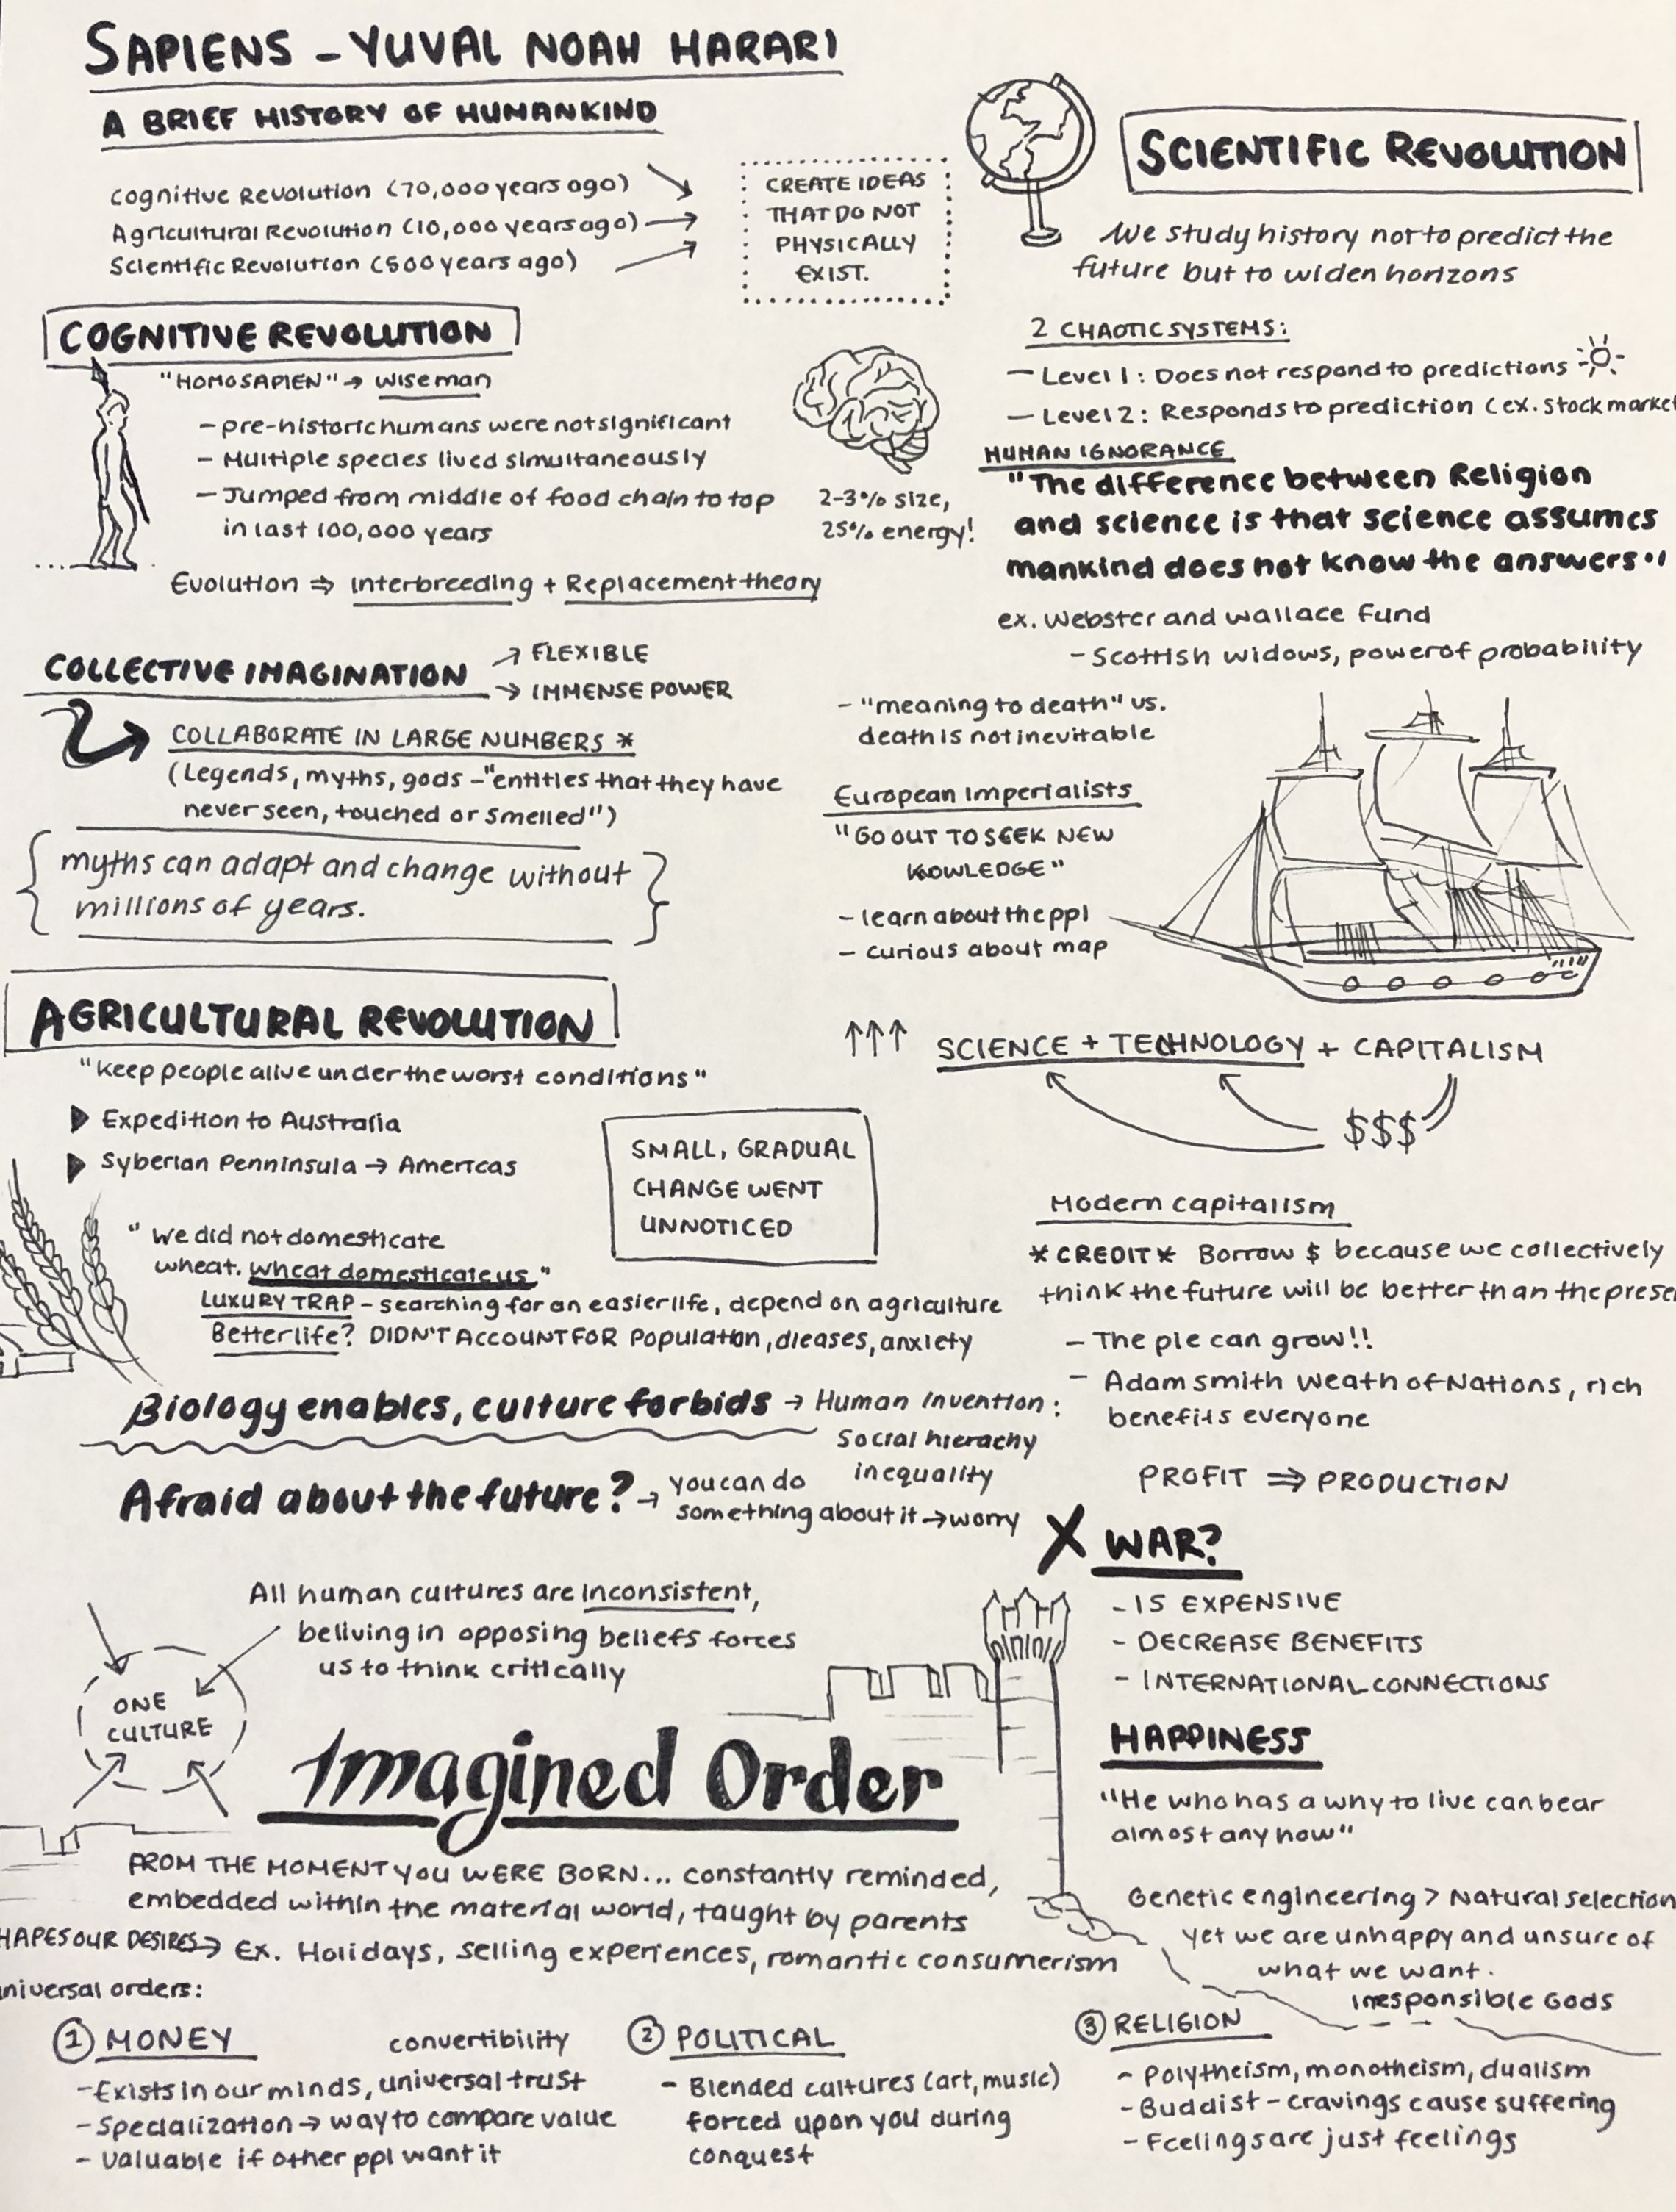 SAPIENS - YUVAL NOAH HARARI
A BRIEF HISTORY OF HUMANKIND
Cognitive Revolution (70,000 years ago)
Agricultural Revolution (10,000 years ago)
Scientific Revolution (500 years ago)
CREATE IDEAS
THAT DO NOT
PHYSICALLY
EXIST.
COGNITIVE REVOLUTION
"HOMOSAPIEN" → wise man
- pre-historic humans were not significant
- Multiple species lived simultaneously
- Jumped from middle of food chain to top
in last 100,000 years
2-3% size,
25% energy!
Evolution ⇒ Interbreeding + Replacement theory
COLLECTIVE IMAGINATION
→ FLEXIBLE
→ IMMENSE POWER
COLLABORATE IN LARGE NUMBERS *
(Legends, myths, gods - "entities that they have
never seen, touched or smelled")
{ myths can adapt and change without
millions of years. }
AGRICULTURAL REVOLUTION
"Keep people alive under the worst conditions"
▶ Expedition to Australia
▶ Syberian Penninsula → Americas
SMALL, GRADUAL
CHANGE WENT
UNNOTICED
" We did not domesticate
wheat. wheat domesticate us "
LUXURY TRAP - searching for an easier life, depend on agriculture
Better life? DIDN'T ACCOUNT FOR Population, dieases, anxiety
Biology enables, culture forbids → Human Invention:
Social hierachy
inequality
Afraid about the future? → you can do
something about it → worry
All human cultures are inconsistent,
beliving in opposing beliefs forces
us to think critically
ONE
CULTURE
Imagined Order
FROM THE MOMENT YOU WERE BORN... constantly reminded,
embedded within the material world, taught by parents
HAPES OUR DESIRES → Ex. Holidays, selling experiences, romantic consumerism
niversal orders:
① MONEY
convertibility
- Exists in our minds, universal trust
- Specialization → way to compare value
- Valuable if other ppl want it
② POLITICAL
- Blended cultures (art, music)
forced upon you during
conquest
③ RELIGION
- Polytheism, monotheism, dualism
- Buddist - cravings cause suffering
- Feelings are just feelings
SCIENTIFIC REVOLUTION
We study history not to predict the
future but to widen horizons
2 CHAOTIC SYSTEMS:
- Level 1: Does not respond to predictions
- Level 2: Responds to prediction (ex. Stock market
HUMAN IGNORANCE
"The difference between Religion
and science is that science assumes
mankind does not know the answers"
ex. Webster and Wallace Fund
- Scottish widows, power of probability
- "meaning to death" vs.
death is not inevitable
European Imperialists
"GO OUT TO SEEK NEW
KNOWLEDGE"
- learn about the ppl
- curious about map
↑↑↑ SCIENCE + TECHNOLOGY + CAPITALISM
$$$
Modern capitalism
*CREDIT* Borrow $ because we collectively
think the future will be better than the prese
- The pie can grow!!
- Adam smith Weath of Nations, rich
benefits everyone
PROFIT ⇒ PRODUCTION
X WAR?
- IS EXPENSIVE
- DECREASE BENEFITS
- INTERNATIONAL CONNECTIONS
HAPPINESS
"He who has a why to live can bear
almost any how"
Genetic engineering > Natural selection
yet we are unhappy and unsure of
what we want.
irresponsible Gods